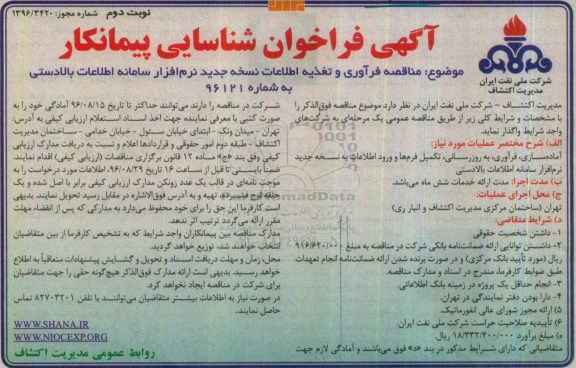 نوبت دوم
شماره مجوز: ۱۳۹۶/۳۴۲۰
آگهی فراخوان شناسایی پیمانکار
موضوع: مناقصه فرآوری و تغذیه اطلاعات نسخه جدید نرم‌افزار سامانه اطلاعات بالادستی
به شماره ۹۶۱۲۱
شرکت ملی نفت ایران
مدیریت اکتشاف
مدیریت اکتشاف - شرکت ملی نفت ایران در نظر دارد موضوع مناقصه فوق‌الذکر را
با مشخصات و شرایط کلی زیر از طریق مناقصه عمومی یک مرحله‌ای به شرکت‌های
واجد شرایط واگذار نماید.
الف) شرح مختصر عملیات مورد نیاز:
آماده‌سازی، فرآوری، به روزرسانی، تکمیل فرم‌ها و ورود اطلاعات به نسخه جدید
نرم‌افزار سامانه اطلاعات بالادستی
ب) مدت اجرا: مدت ارائه خدمات شش ماه می‌باشد.
ج) محل اجرای عملیات:
تهران (ساختمان مرکزی مدیریت اکتشاف و انبار ری)
د) شرایط متقاضی:
۱- داشتن شخصیت حقوقی
۲- داشتن توانایی ارائه ضمانت‌نامه بانکی شرکت در مناقصه به مبلغ
ریال (مورد تأیید بانک مرکزی) و در صورت برنده شدن ارائه ضمانت‌نامه انجام تعهدات
طبق ضوابط کارفرما، مندرج در اسناد و مدارک مناقصه.
۳- انجام حداقل یک پروژه در زمینه بانک اطلاعاتی.
۴- دارا بودن دفتر نمایندگی در تهران.
۵) ارائه مجوز شورای عالی انفورماتیک.
۶) تأییدیه صلاحیت حراست شرکت ملی نفت ایران.
ه) مبلغ برآورد ۱۸/۳۳۲/۴۰۰/۰۰۰ ریال.
متقاضیانی که دارای شرایط مذکور در بند «د» فوق می‌باشند و آمادگی لازم جهت
شرکت در مناقصه را دارند می‌توانند حداکثر تا تاریخ ۹۶/۰۸/۱۵ آمادگی خود را به
صورت کتبی با معرفی نماینده جهت اخذ اسناد استعلام ارزیابی کیفی به آدرس:
تهران - میدان ونک - ابتدای خیابان سئول - خیابان خدامی - ساختمان مدیریت
اکتشاف - طبقه دوم امور حقوقی و قراردادها اعلام و نسبت به دریافت مدارک ارزیابی
کیفی وفق بند «ج» ماده ۱۲ قانون برگزاری مناقصات (ارزیابی کیفی) اقدام نمایند.
ضمناً بایستی تا قبل از ساعت ۱۶ تاریخ ۹۶/۰۸/۲۹، اطلاعات مورد درخواست را به
موجب نامه‌ای در قالب یک عدد زونکن مدارک ارزیابی کیفی برابر با اصل شده و یک
حلقه لوح فشرده، تهیه و به آدرس فوق‌الاشاره در مقابل رسید تحویل نمایند. بدیهی
است کارفرما این حق را برای خود محفوظ می‌دارد به مدارکی که پس از انقضاء مهلت
مقرر ارائه می‌گردد ترتیب اثر ندهد.
مدارک مناقصه بین پیمانکاران واجد شرایط که به تشخیص کارفرما از بین متقاضیان
انتخاب خواهند شد، توزیع خواهد گردید.
محل زمان و مهلت دریافت اسناد و تحویل و گشایش پیشنهادات متعاقباً به اطلاع
خواهد رسید. بدیهی است ارائه مدارک فوق‌الذکر هیچ‌گونه حقی را جهت متقاضیان
برای شرکت در مناقصه ایجاد نخواهد کرد.
در صورت نیاز به اطلاعات بیشتر متقاضیان می‌توانند با تلفن ۸۲۷۰۳۲۰۱ تماس
حاصل نمایند.
WWW.SHANA.IR
WWW.NIOCEXP.ORG
روابط عمومی مدیریت اکتشاف